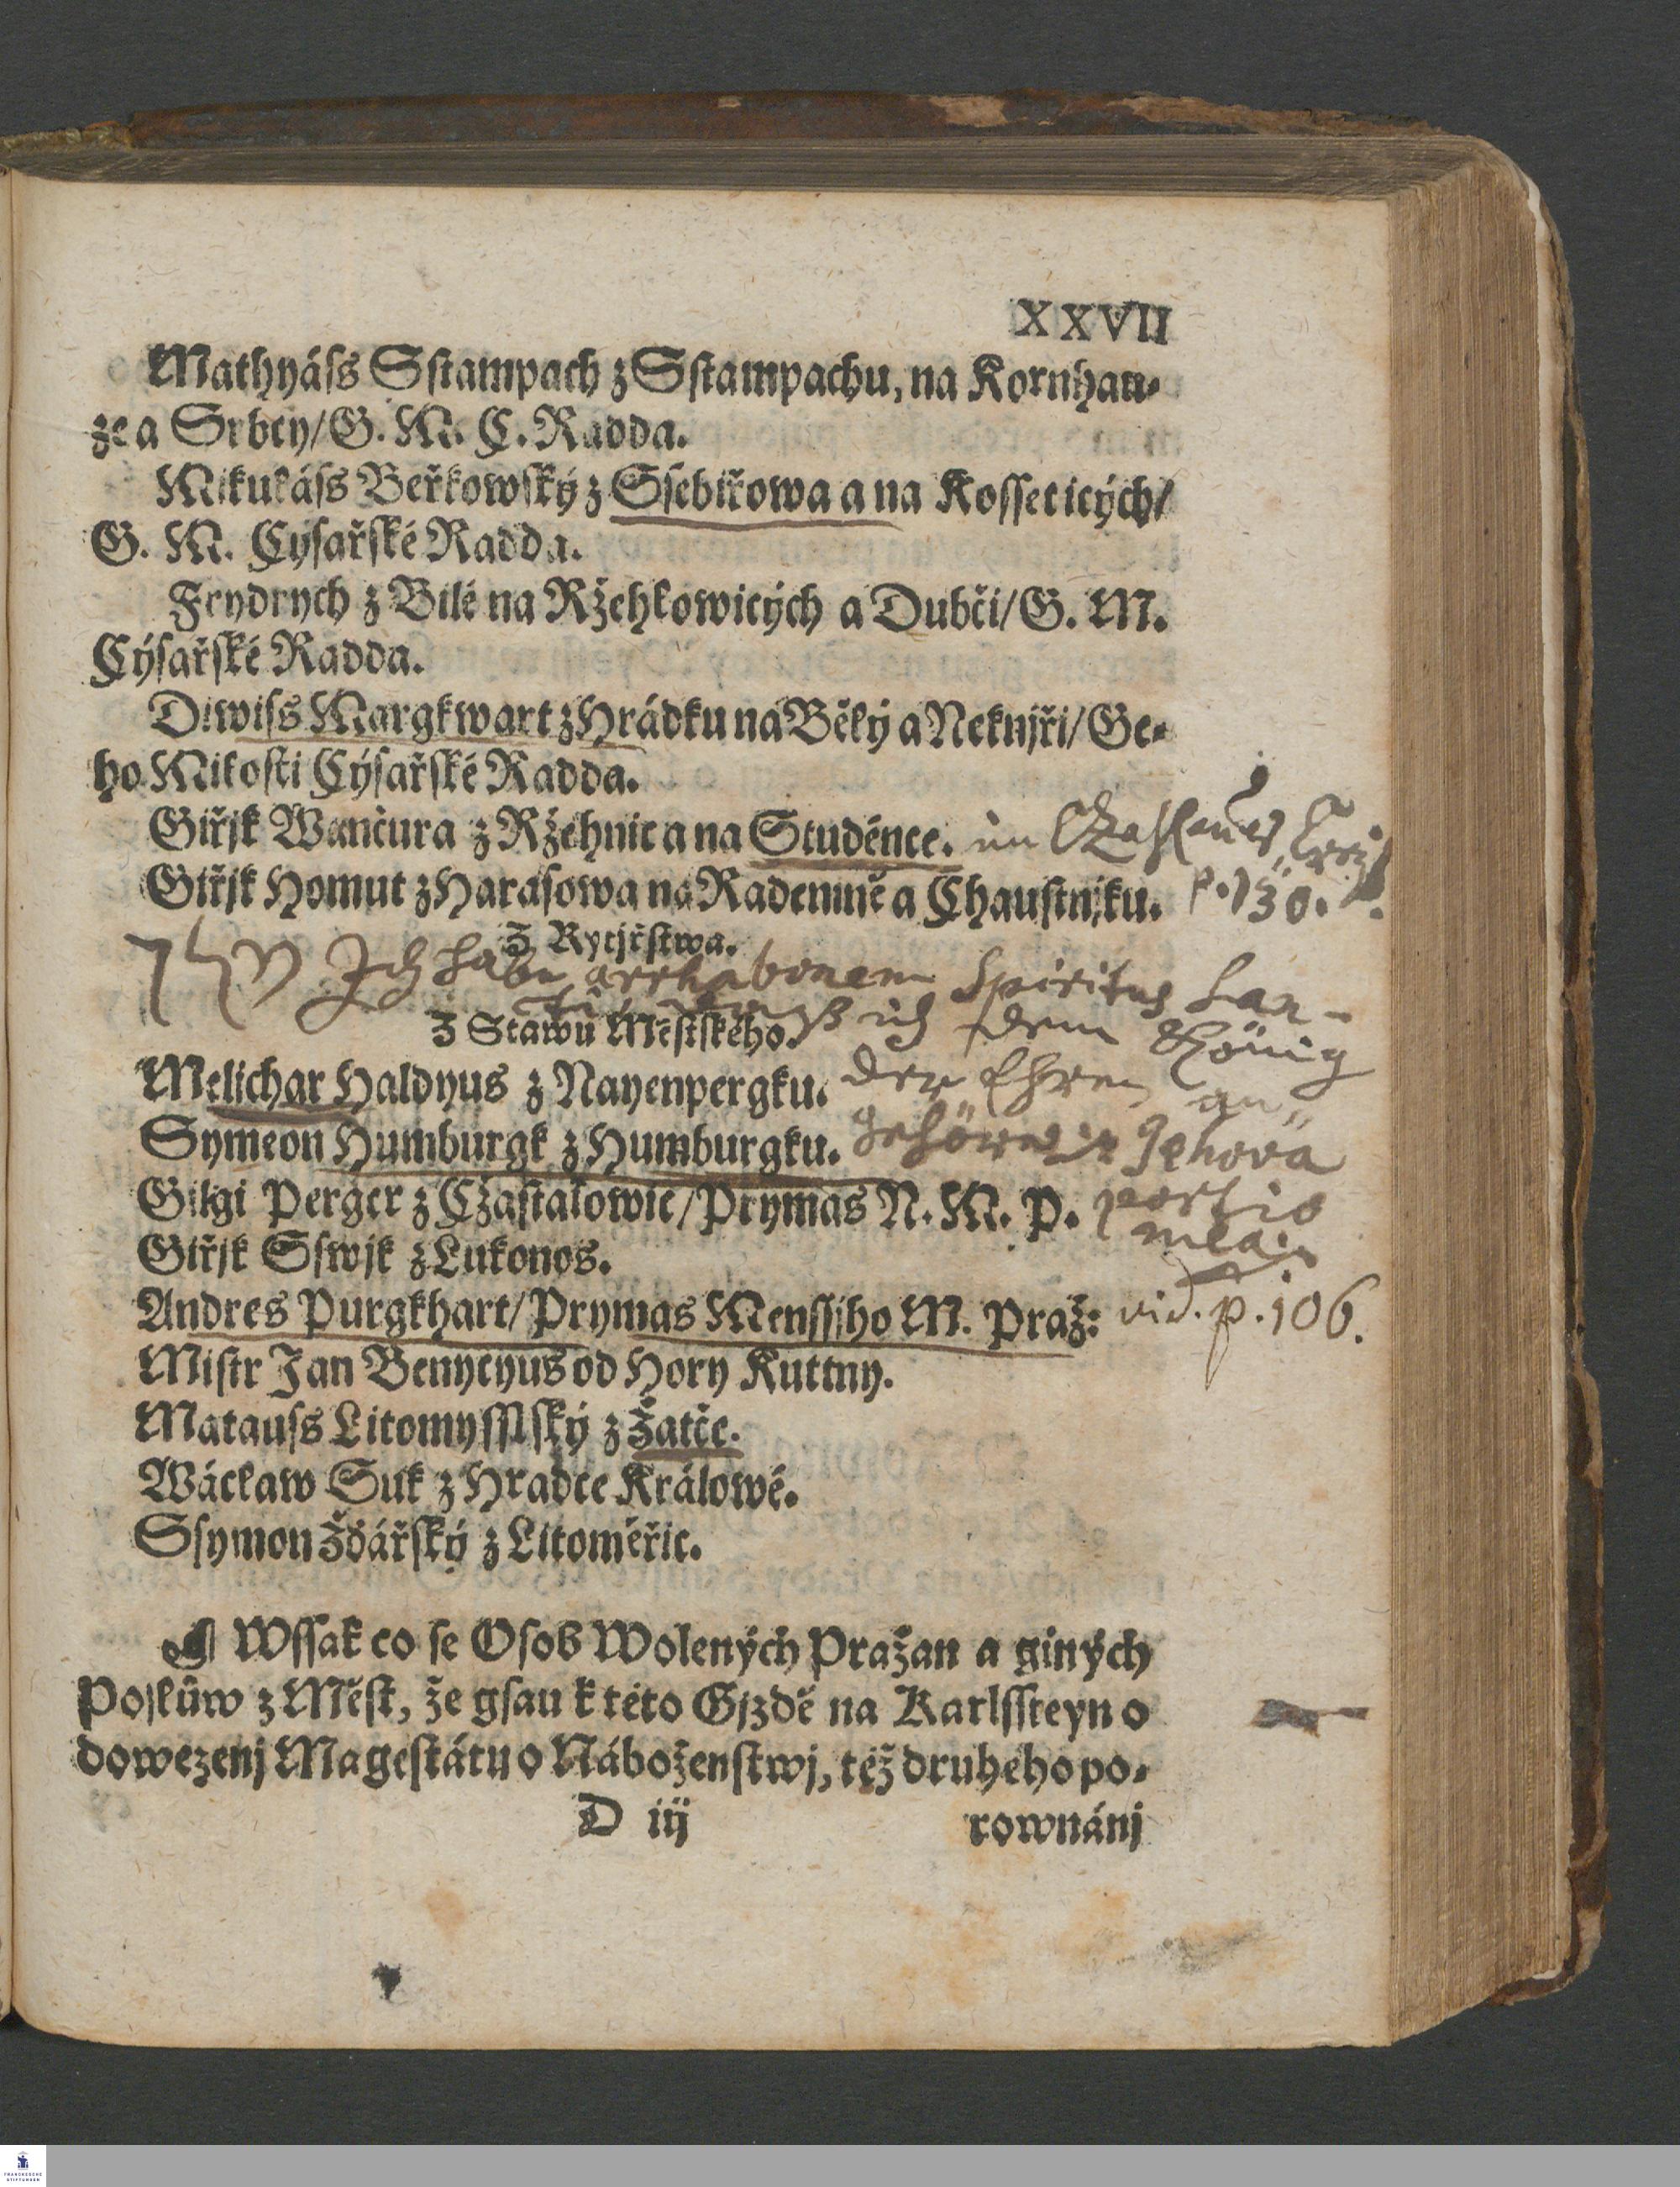 XXVII
Mathyáſs Sſtampach z Sſtampachu, na Kornhau-
ze a Srbcy/ G. M. C. Radda.
Mikuláſs Beřkowſký z Sſebiřowa a na Koſſeticých/
G. M. Cýſařſké Radda.
Frydrych z Bilé na Ržehlowicých a Dubči/ G. M.
Cýſařſké Radda.
Diwiſs Margkwart z Hrádku na Bělý a Nekmjři/ Ge-
ho Miloſti Cýſařſké Radda.
Giřjk Wančura z Ržehnic a na Studénce. im
Giřjk Homut z Haraſowa na Radenině a Chauſtnjku. p. 130.
Z Rytjřſtwa.
Ich habe arrhabonem Spiritus San-
Z Stawu Měſtſkého. ich dem König
Melichar Haldyus z Nayenpergku. der Ehren an-
Symeon Humburgk z Humburgku. gehöre Jehova
Gilgi Perger z Cžaſtalowic/ Prymas N. M. P. portio
mea
Giřjk Sſwjk z Lukonos.
Andres Purgkhart/ Prymas Menſſiho M. Praž: vid. p. 106.
Miſtr Jan Benycyus od Hory Kuttny.
Matauſs Litomyſſlſký z Žatče.
Wácław Suk z Hradce Králowé.
Sſymon Žďářſký z Litoměřic.
¶ Wſſak co ſe Oſob Wolených Pražan a giných
Poſlůw z Měſt, že gſau k této Gjzdě na Karlſſteyn o
dowezenj Mageſtátu o Náboženſtwj, též druhého po-
D iij rownánj
FRANCKESCHE
STIFTUNGEN